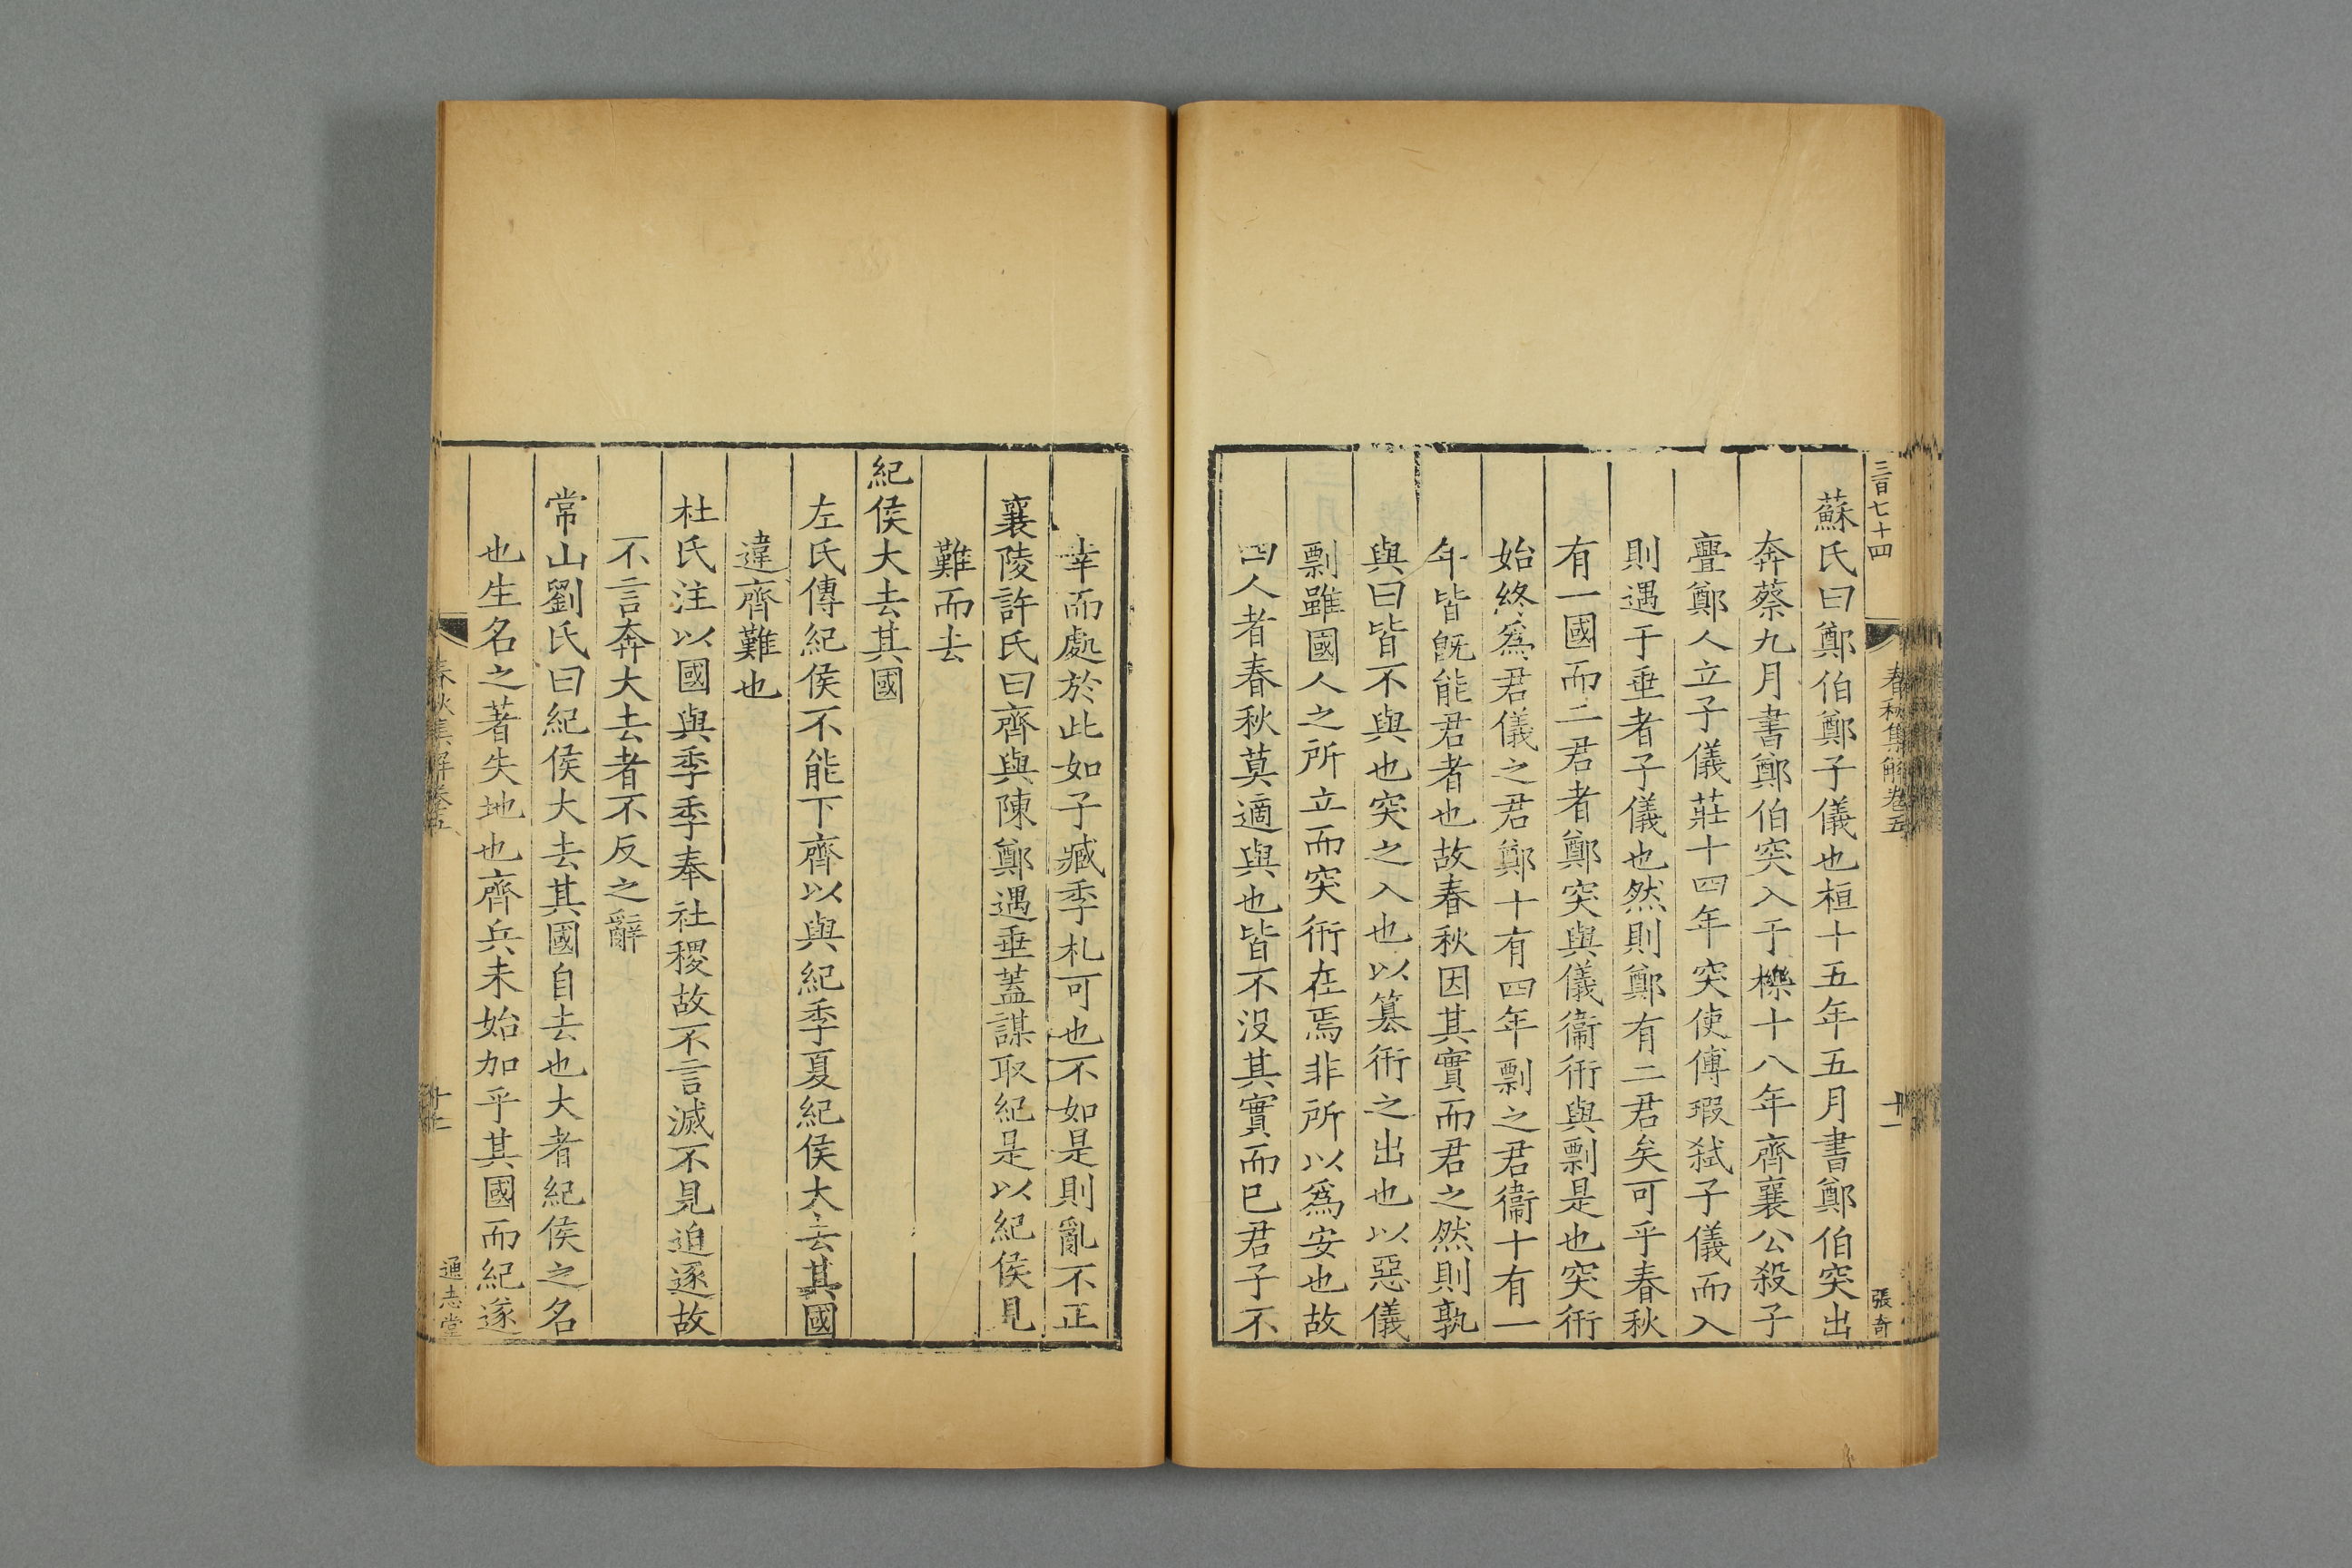 三百七十四
春秋集解卷五
十一
張奇
蘇氏曰鄭伯鄭子儀也桓十五年五月書鄭伯突出
奔蔡九月書鄭伯突入于櫟十八年齊襄公殺子
亹鄭人立子儀莊十四年突使傅瑕弑子儀而入
則遇于垂者子儀也然則鄭有二君矣可乎春秋
有一國而二君者鄭突與儀衞衎與剽是也突衎
始終爲君儀之君鄭十有四年剽之君衞十有一
年皆旣能君者也故春秋因其實而君之然則孰
與曰皆不與也突之入也以篡衎之出也以惡儀
剽雖國人之所立而突衎在焉非所以爲安也故
四人者春秋莫適與也皆不沒其實而已君子不
幸而處於此如子臧季札可也不如是則亂不正
襄陵許氏曰齊與陳鄭遇垂蓋謀取紀是以紀侯見
難而去
紀侯大去其國
左氏傳紀侯不能下齊以與紀季夏紀侯大去其國
違齊難也
杜氏注以國與季季奉社稷故不言滅不見迫逐故
不言奔大去者不反之辭
常山劉氏曰紀侯大去其國自去也大者紀侯之名
也生名之著失地也齊兵未始加乎其國而紀遂
春秋集解卷五
通志堂